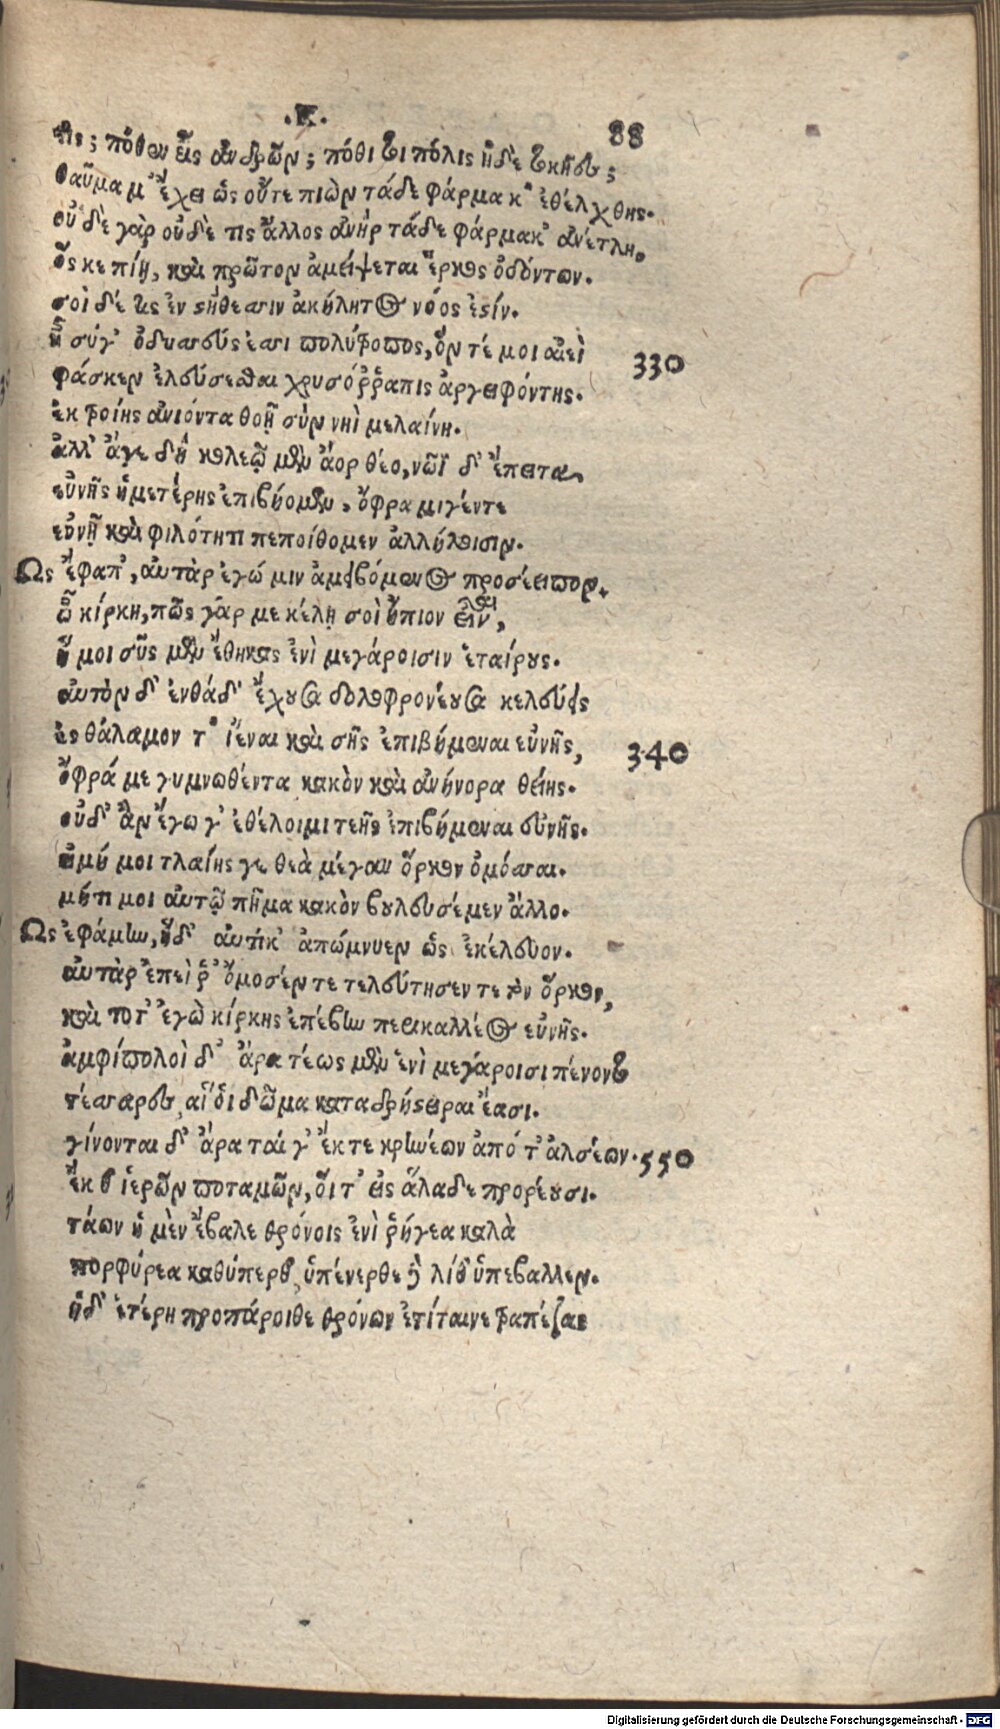 .Κ. 88
τίς; πόθεν εἶς ἀνδρῶν; πόθι τοι πόλις ἠδὲ τοκῆες;
θαῦμα μ' ἔχει ὡς οὔτε πιὼν τάδε φάρμακ' ἐθέλχθης.
οὐδὲ γὰρ οὐδὲ τις ἄλλος ἀνὴρ τάδε φάρμακ' ἀνέτλη,
ὅς κε πίῃ, καὶ πρῶτον ἀμείψεται ἕρκος ὀδόντων.
σοὶ δέ τις ἐν στήθεσσιν ἀκήλητος νόος ἐστίν.
ἦ σύγ' ὀδυσσεύς ἐσσι πολύτροπος, ὅν τέ μοι αἰεὶ 330
φάσκεν ἐλεύσεσθαι χρυσόῤῥαπις ἀργειφόντης.
ἐκ τροίης ἀνιόντα θοῇ σὺν νηὶ μελαίνῃ.
ἀλλ' ἄγε δὴ κολεῷ μὲν ἄορ θέο, νῶϊ δ' ἔπειτα,
εὐνῆς ἡμετέρης ἐπιβήομεν, ὄφρα μιγέντε
εὐνῇ καὶ φιλότητι πεποίθομεν ἀλλήλοισιν.
Ὣς ἔφατ', αὐτὰρ ἐγώ μιν ἀμειβόμενος προσέειπον.
ὦ κίρκη, πῶς γάρ με κέλῃ σοὶ ἤπιον εἶναι,
ἥ μοι σῦς μὲν ἔθηκας ἐνὶ μεγάροισιν ἑταίρους.
αὐτὸν δ' ἐνθάδ' ἔχουσα δολοφρονέουσα κελεύεις
ἐς θάλαμον τ' ἰέναι καὶ σῆς ἐπιβήμεναι εὐνῆς, 340
ὄφρά με γυμνωθέντα κακὸν καὶ ἀνήνορα θείης.
οὐδ' ἂν ἔγωγ' ἐθέλοιμι τεῆς ἐπιβήμεναι εὐνῆς.
εἰ μή μοι τλαίης γε θεὰ μέγαν ὅρκον ὀμόσσαι.
μήτι μοι αὐτῷ πῆμα κακὸν βουλευσέμεν ἄλλο.
Ὣς ἐφάμην, ἡ δ' αὐτίκ' ἀπώμνυεν ὡς ἐκέλευον.
αὐτὰρ ἐπεὶ ῥ' ὄμοσέν τε τελεύτησεν τε τὸν ὅρκον,
καὶ τοτ' ἐγὼ κίρκης ἐπέβην περικαλλέος εὐνῆς.
ἀμφίπολοὶ δ' ἄρα τέως μὲν ἐνὶ μεγάροισι πένοντο
τέσσαρες, αἵ οἱ δῶμα κατα δρήστειραι ἔασι.
γίνονται δ' ἄρα ταί γ' ἔκ τε κρηνέων ἀπό τ' ἀλσέων. 550
ἔκ θ' ἱερῶν ποταμῶν, οἵ τ' εἰς ἅλαδε προρέουσι.
τάων ἡ μὲν ἔβαλε θρόνοις ἐνὶ ῥήγεα καλὰ
πορφύρεα καθύπερθ', ὑπένερθε δὲ λίθ' ὑπεβαλλεν.
ἡ δ' ἑτέρη προπάροιθε θρόνων ἐτίταινε τραπέζας